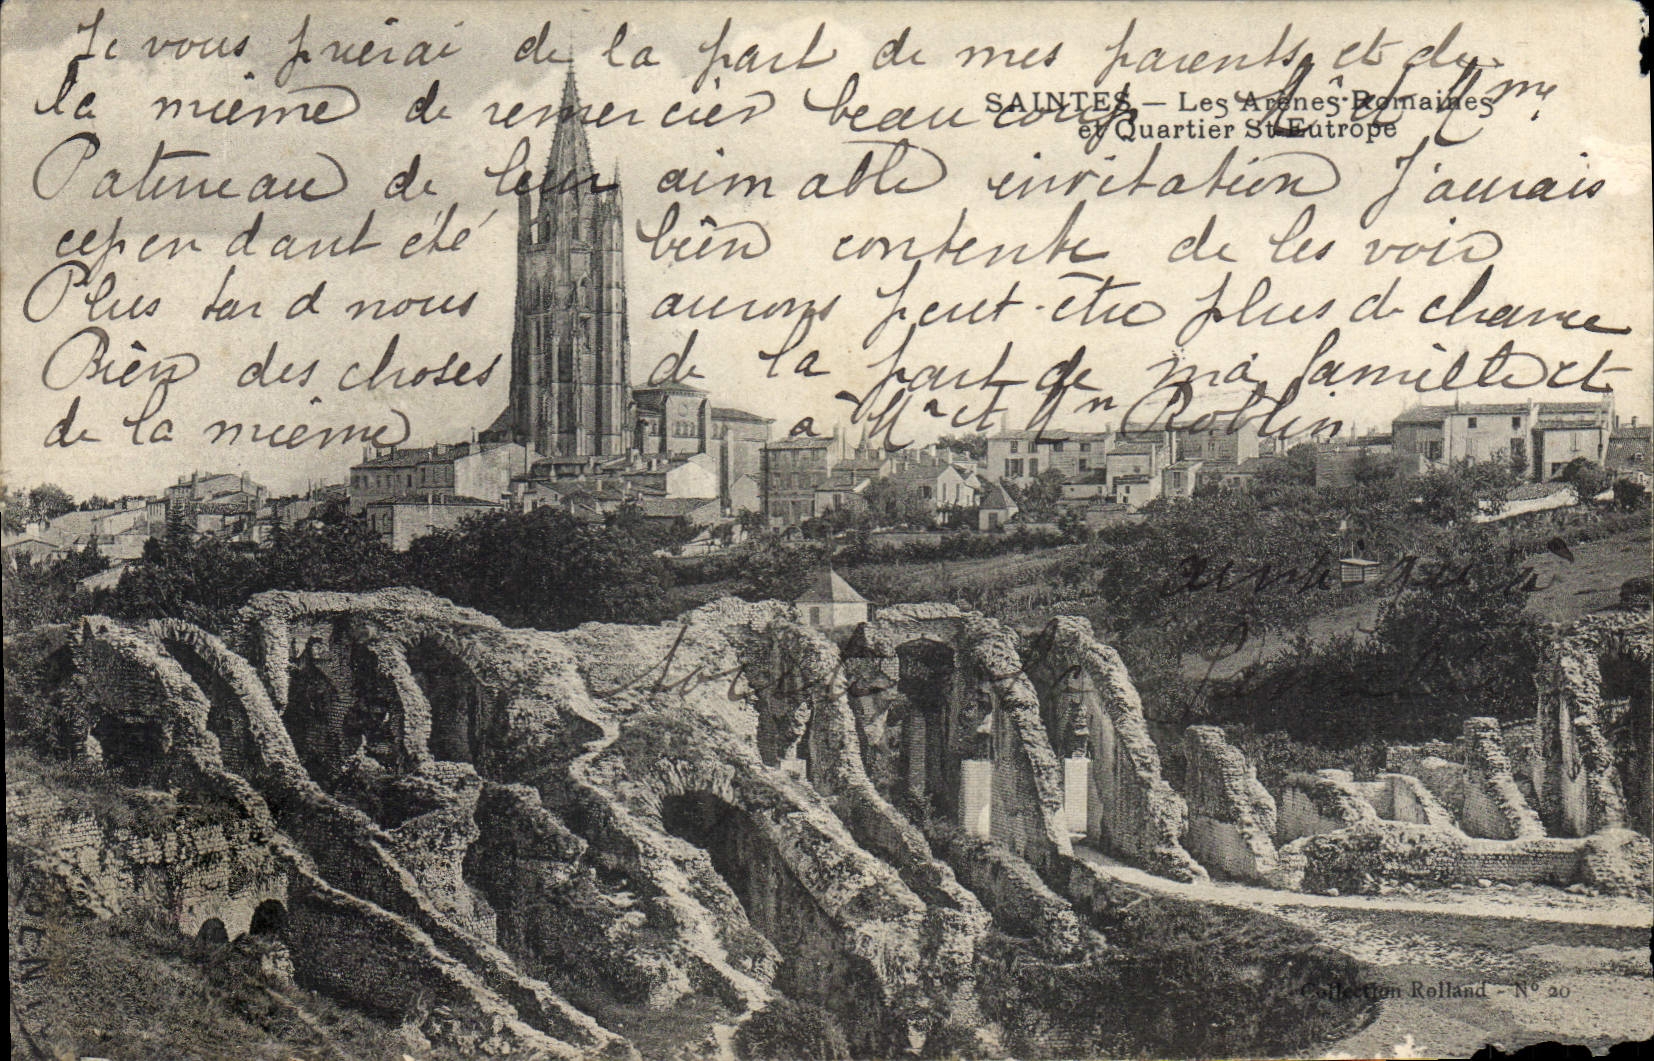 Je vous prierai de la part de mes parents et de
la mieme de remercier beaucoup Mr et Mme
SAINTES — Les Arènes Romaines
et Quartier St-Eutrope
Patureau de leur aimable invitation J'aurais
cependant été bien contente de les voir
Plus tard nous aurons peut-être plus de chance
Bien des choses de la part de ma famille et
de la mienne à Mr et Mm Roblin
ainsi qu'à
Collection Rolland - Nº 20